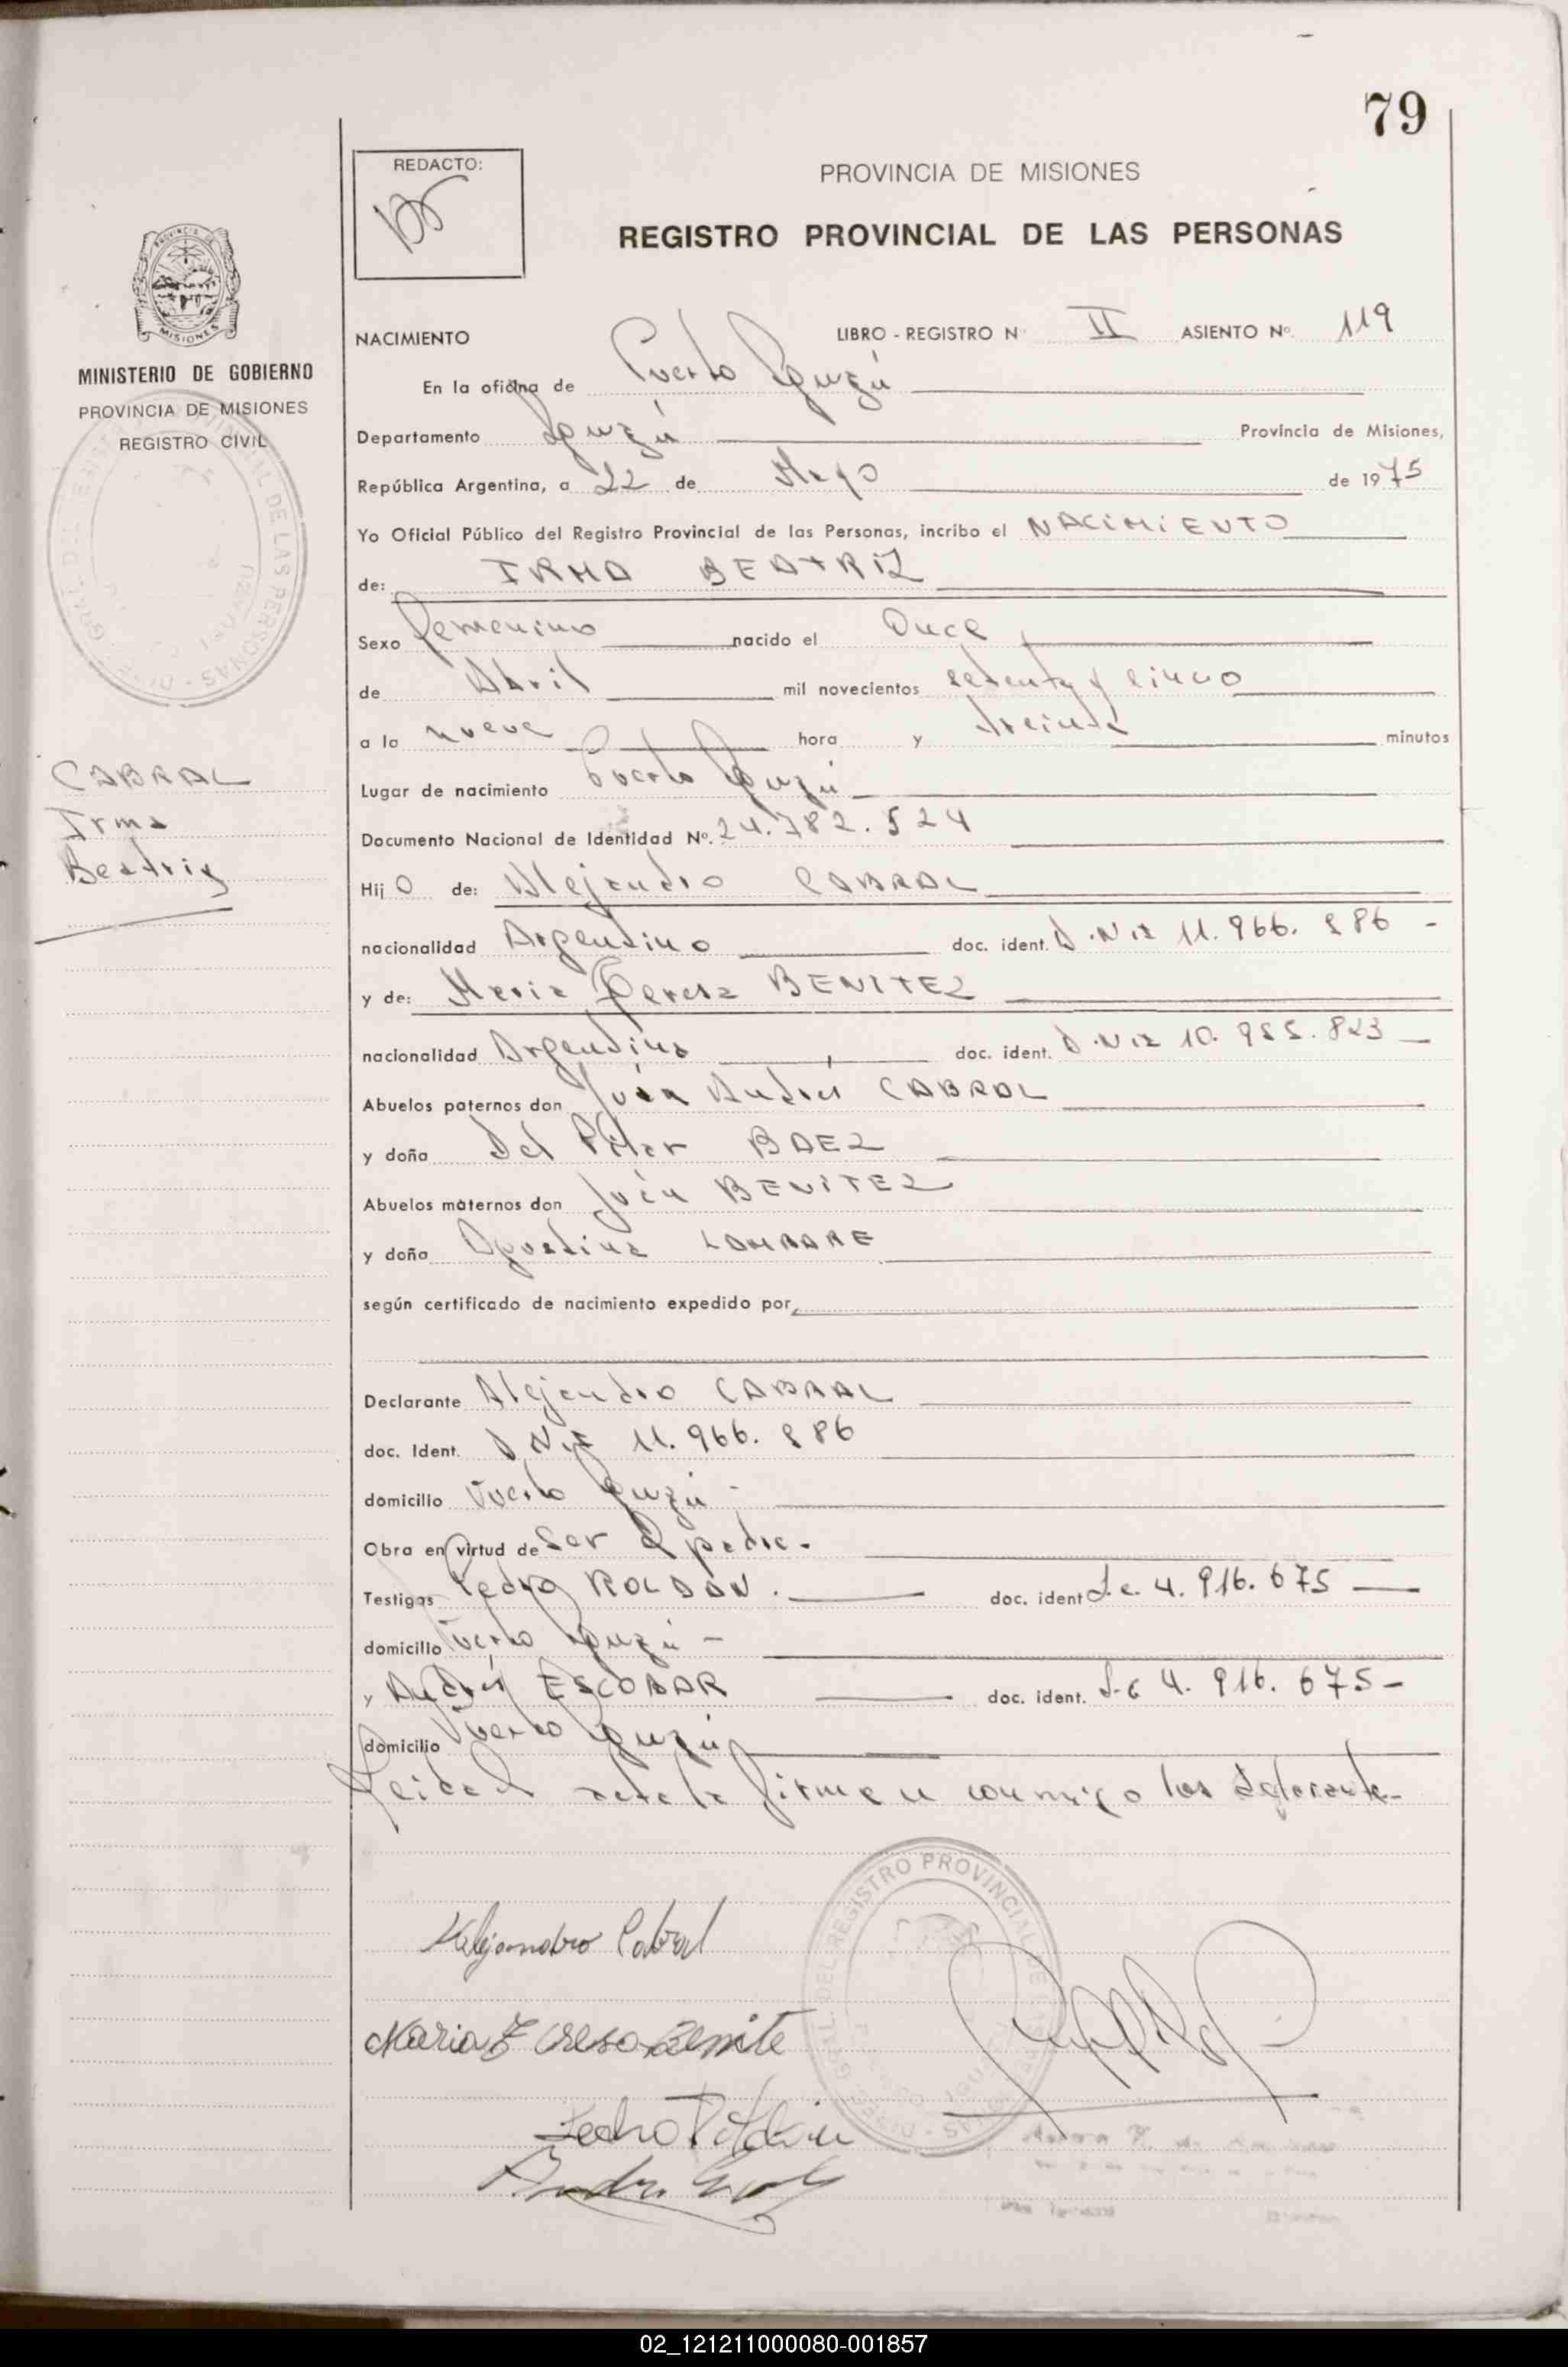 79
REDACTO:
PROVINCIA DE MISIONES
REGISTRO PROVINCIAL DE LAS PERSONAS
PROVINCIA DE
MISIONES
MINISTERIO DE GOBIERNO
PROVINCIA DE MISIONES
REGISTRO CIVIL
CABRAL
Irma
Beatriz
NACIMIENTO LIBRO - REGISTRO Nº II ASIENTO Nº 119
En la oficina de Puerto Iguazú
Departamento Iguazú Provincia de Misiones,
República Argentina, a 22 de Mayo de 1975
Yo Oficial Público del Registro Provincial de las Personas, incribo el NACIMIENTO
de: IRMA BEATRIZ
Sexo femenino nacido el Once
de Abril mil novecientos setenta y cinco
a la nueve hora y treinta minutos
Lugar de nacimiento Puerto Iguazú
Documento Nacional de Identidad Nº. 24.782.524
Hij o de: Alejandro CABRAL
nacionalidad Argentino doc. ident. D.N.I. 11.966.886 -
y de: Maria Teresa BENITEZ
nacionalidad Argentina doc. ident. D.N.I. 10.985.823
Abuelos paternos don Juan Andrés CABRAL
y doña Del Pilar BAEZ
Abuelos maternos don Juan BENITEZ
y doña Agustina
según certificado de nacimiento expedido por
Declarante Alejandro CABRAL
doc. Ident. D.N.I. 11.966.886
domicilio Puerto Iguazú -
Obra en virtud de Ser el padre.
Testigos Pedro ROLDAN. doc. ident L.E. 4.916.675
domicilio Puerto Iguazú -
y Andrés ESCOBAR doc. ident. L.E. 4.916.675 -
domicilio Puerto Iguazú
Leida el acta la firman conmigo los
Alejandro Cabral
Maria Teresa Benite
Pedro Roldan
DEL REGISTRO PROVINCIAL DE
02_121211000080-001857